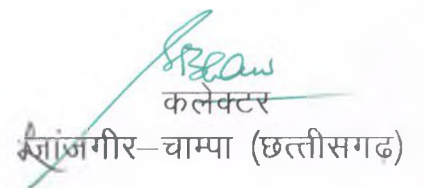 कलेक्टर
जांजगीर–चाम्पा (छत्तीसगढ)